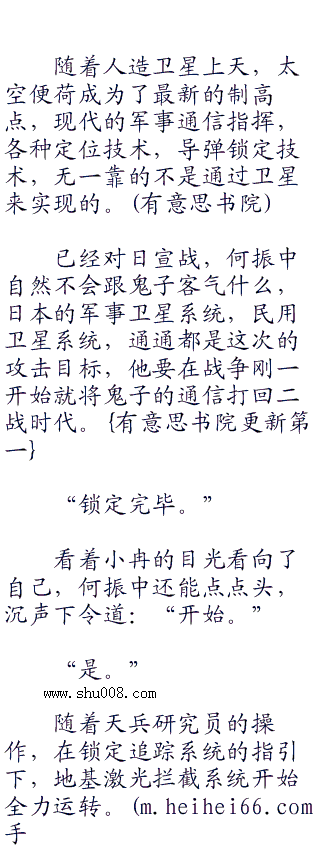 随着人造卫星上天，太
空便荷成为了最新的制高
点，现代的军事通信指挥，
各种定位技术，导弹锁定技
术，无一靠的不是通过卫星
来实现的。(有意思书院)
已经对日宣战，何振中
自然不会跟鬼子客气什么，
日本的军事卫星系统，民用
卫星系统，通通都是这次的
攻击目标，他要在战争刚一
开始就将鬼子的通信打回二
战时代。{有意思书院更新第
一}
“锁定完毕。”
看着小冉的目光看向了
自己，何振中还能点点头，
沉声下令道：“开始。”
“是。”
www.shu008.com
随着天兵研究员的操
作，在锁定追踪系统的指引
下，地基激光拦截系统开始
全力运转。(m.heihei66.com
手